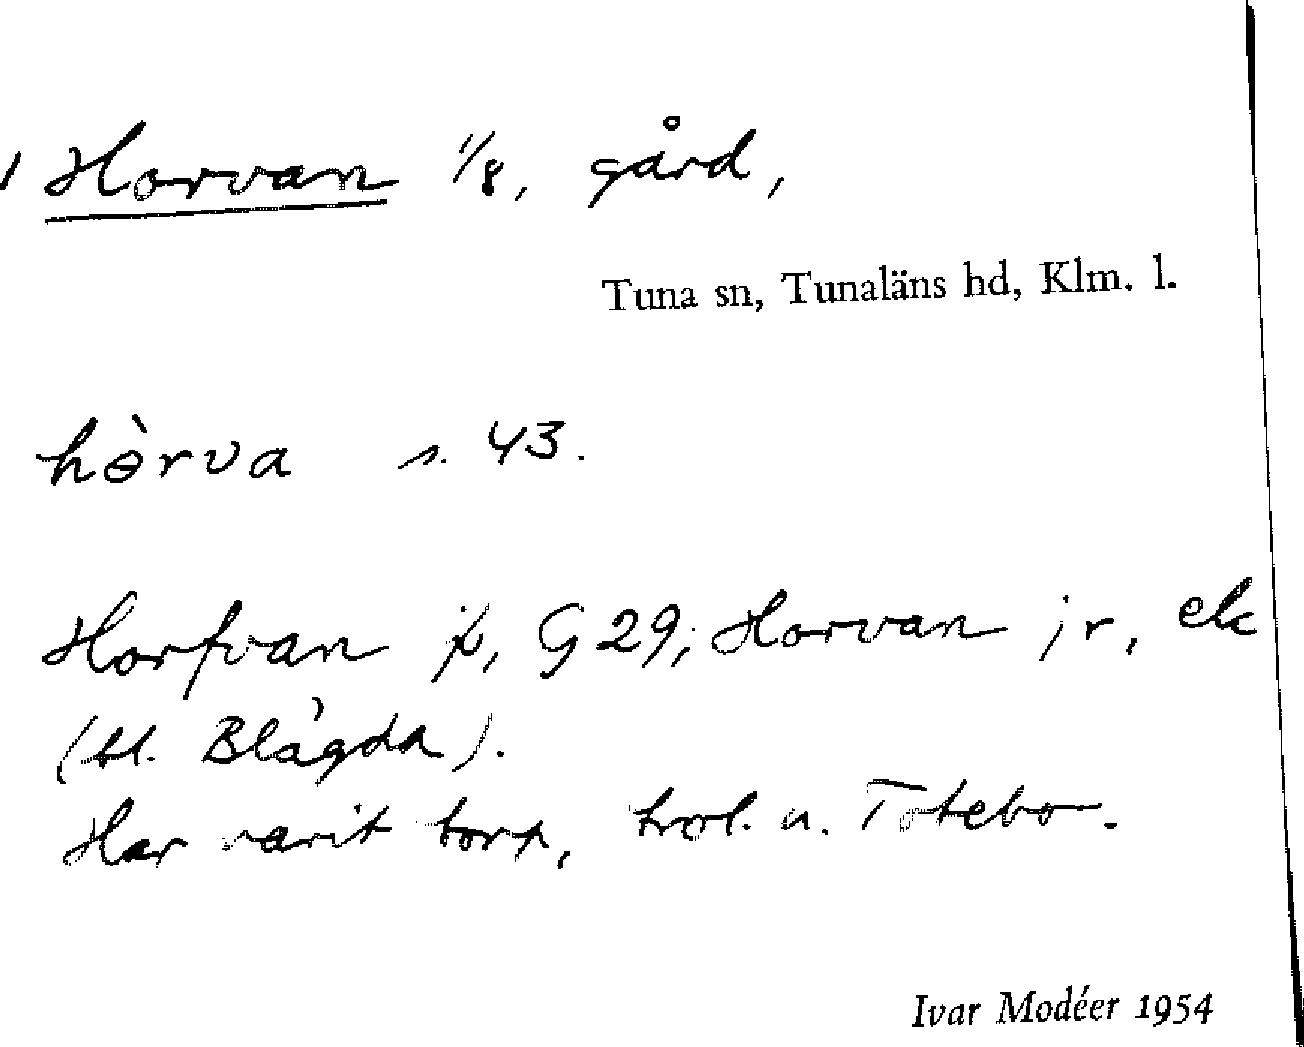 Horvan 1/8, gård,
Tuna sn, Tunaläns hd, Klm. l.
hòrva s. 43.
Horfvan G 29, Horvan jr, ek
(bl. Blågda).
Har varit torp, trol. u. Totebo.
Ivar Modéer 1954